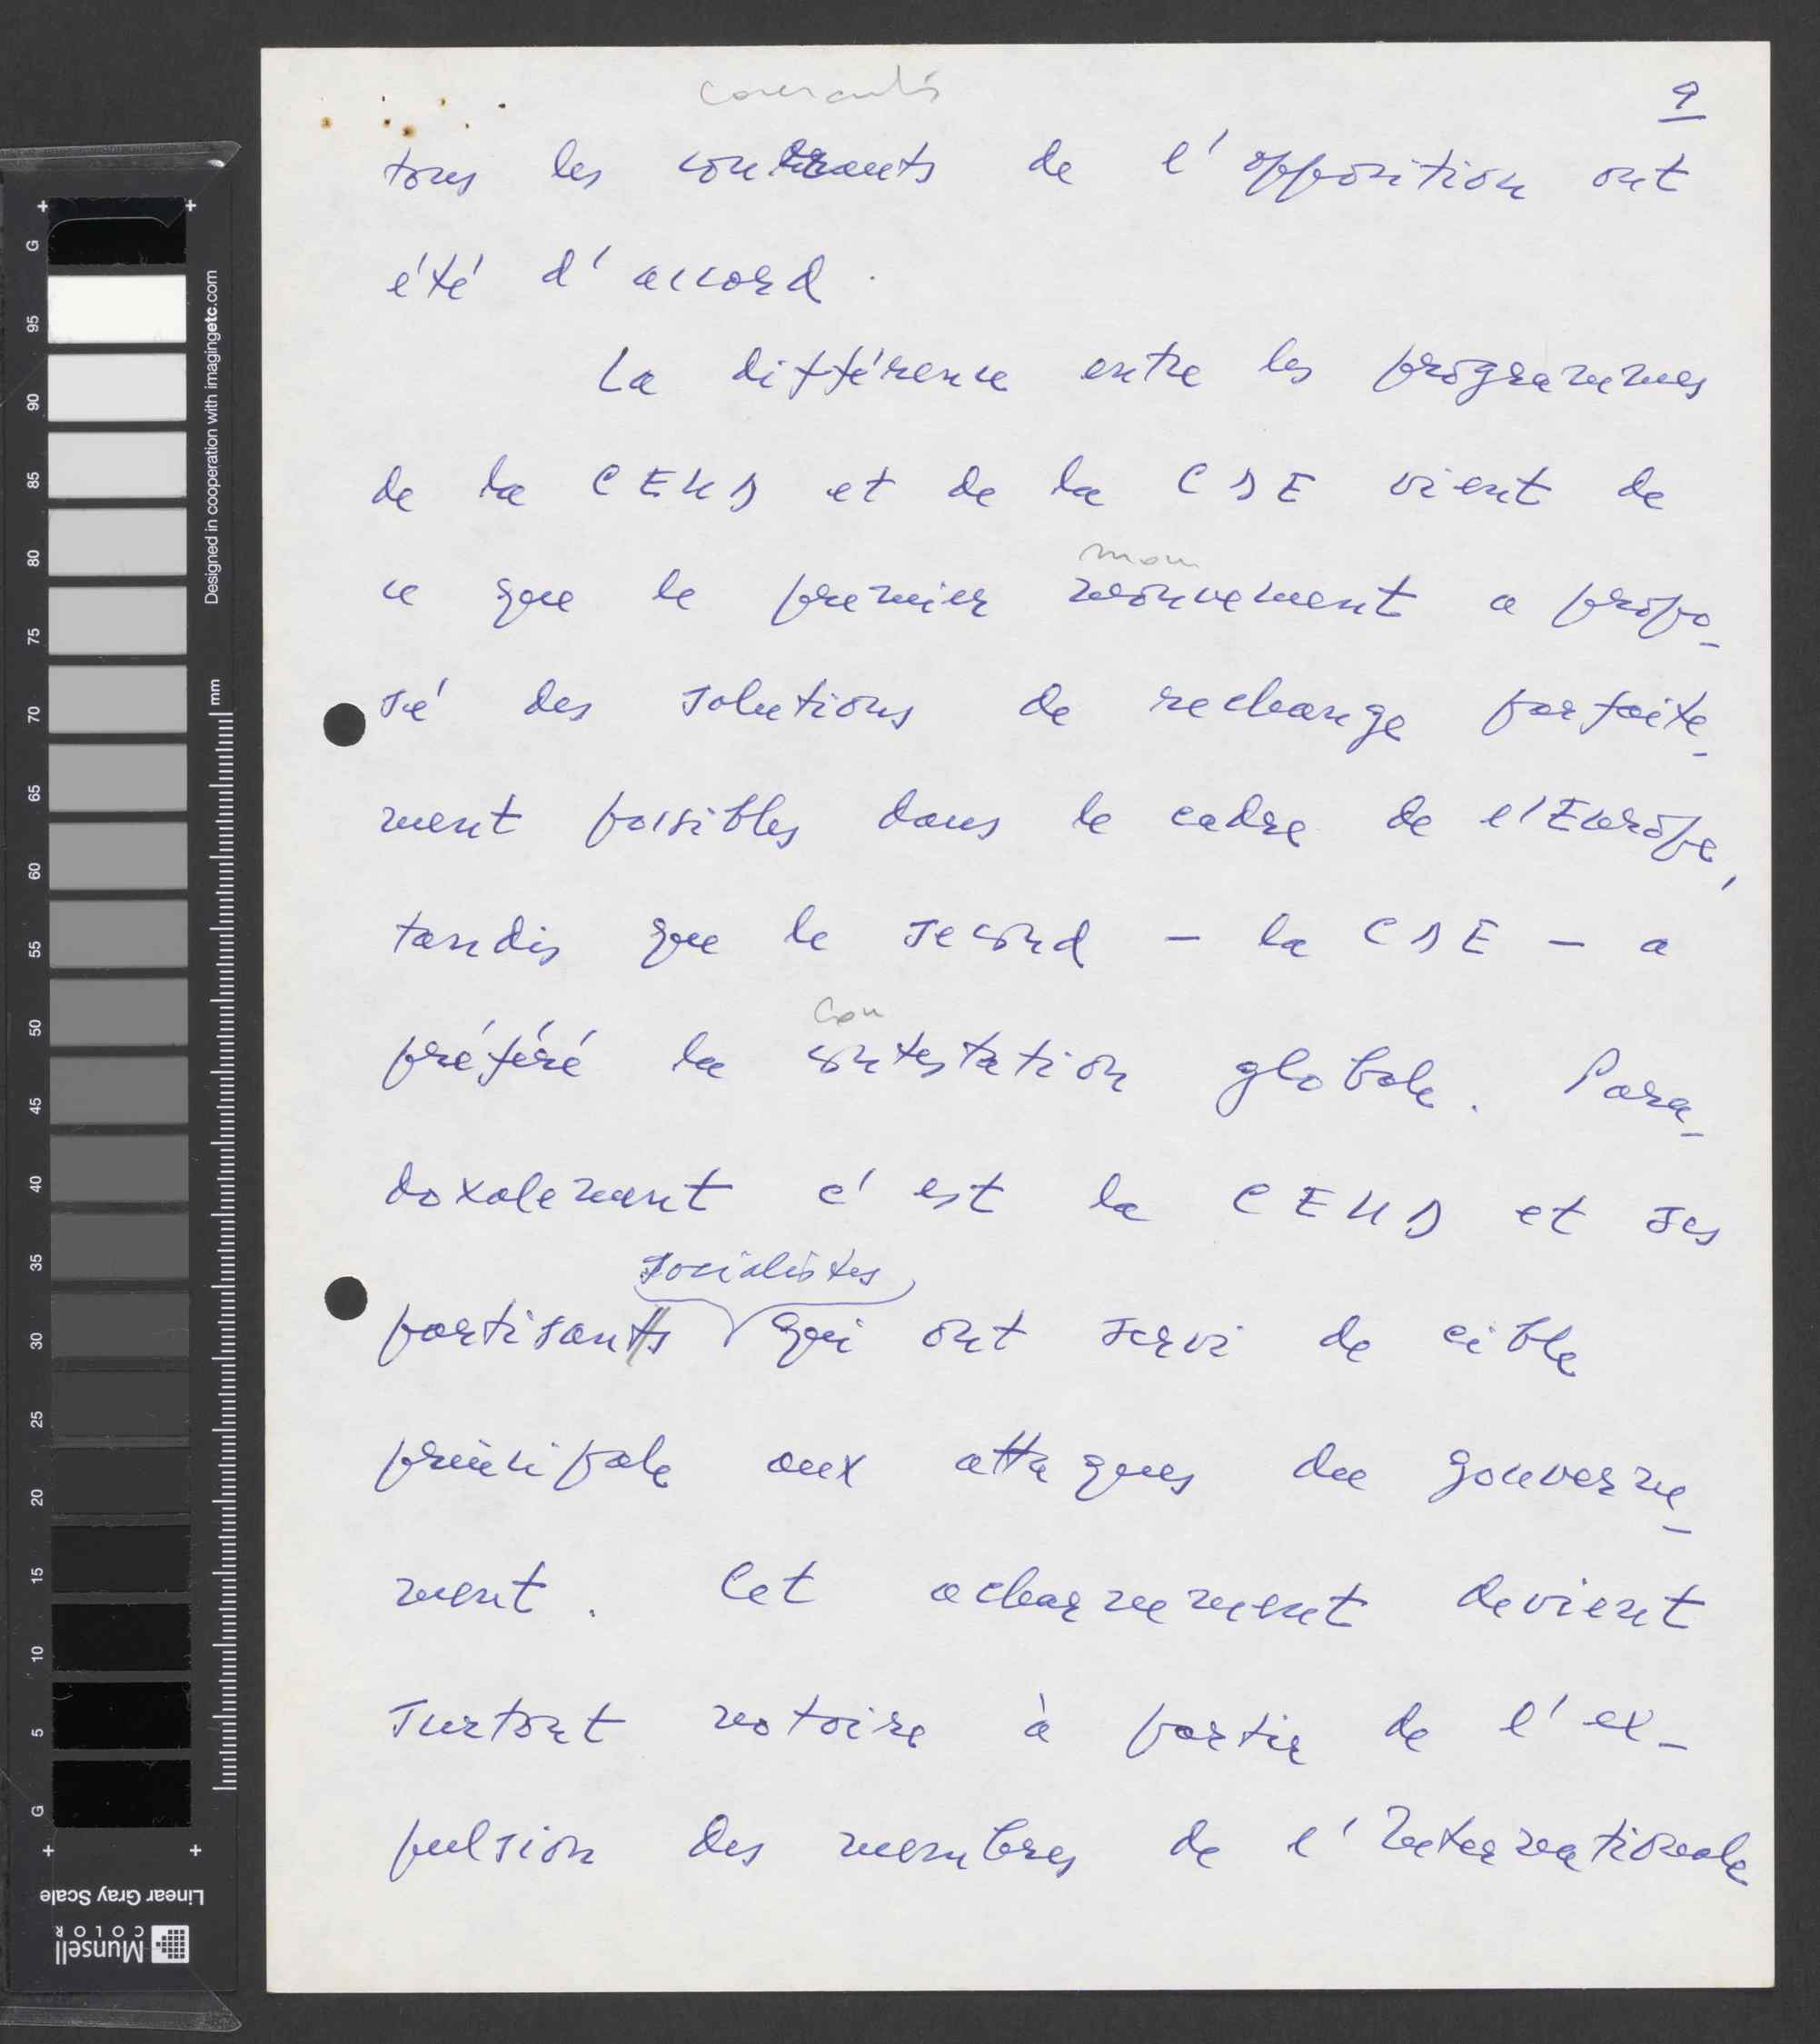 9
courants
tous les courants de l'opposition ont
été d'accord.
La différence entre les programmes
de la CEUD et de la CDE vient de
mou
ce que le premier mouvement a propo-
sé des solutions de rechange parfaite-
ment possibles dans le cadre de l'Europe,
tandis que le second – la CDE – a
con
préféré la contestation globale. Para-
doxalement c'est la CEUD et ses
socialistes
partisants qui ont servi de cible
principale aux attaques du gouverne-
ment. Cet acharnement devient
surtout notoire à partir de l'ex-
pulsion des membres de l'Internationale
G
95
90
85
80
75
70
65
60
55
50
45
40
35
30
25
20
15
10
5
G
mm
Designed in cooperation with imagingetc.com
Linear Gray Scale
Munsell
COLOR